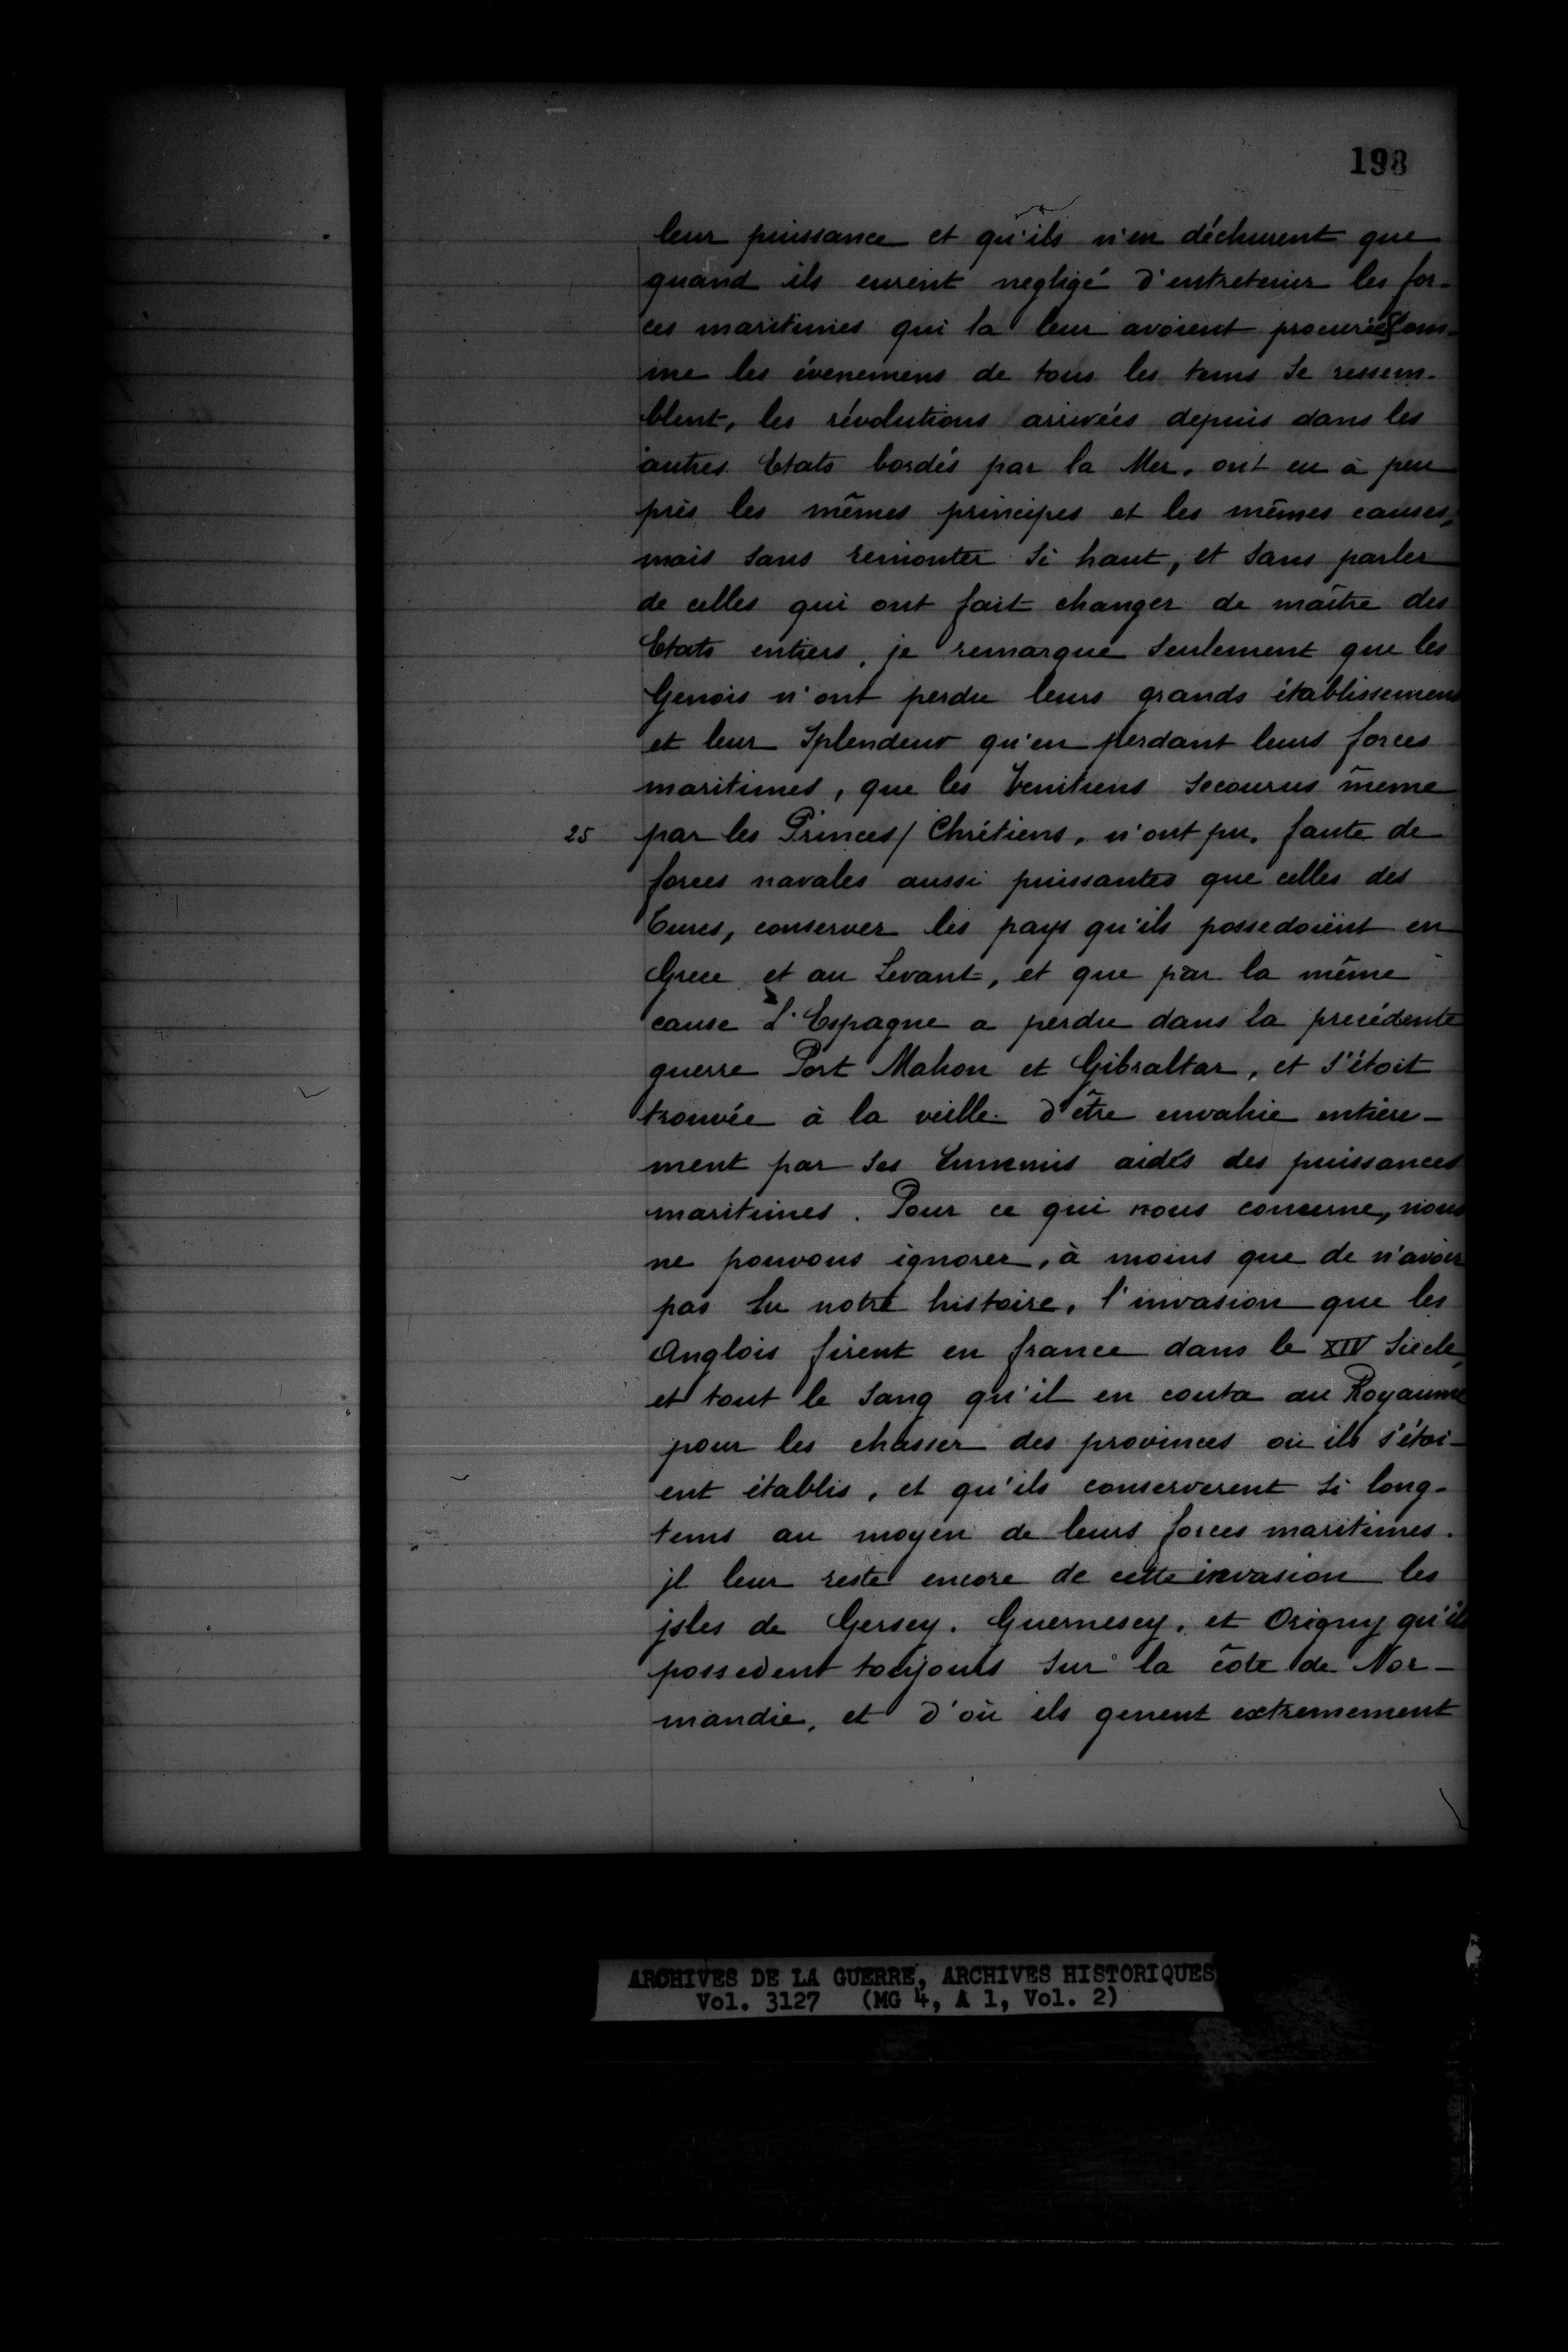 198
leur puissance et qu'ils n'en déchurent que
quand ils eurent negligé d'entretenir les for-
ces maritimes qui la leur avoient procurée Com-
me les évenemens de tous les tems se ressem-
blent, les révolutions arrivées depuis dans les
autres Etats bordés par la Mer, ont eu à peu
près les mêmes principes et les mêmes causes,
mais sans remonter si haut, et sans parler
de celles qui ont fait changer de maître des
Etats entiers, je remarque seulement que les
Genois n'ont perdu leurs grands établissemens
et leur Splendeur qu'en perdant leurs forces
maritimes, que les Venitiens secourus même
25 par les Princes/ Chrétiens, n'ont pu, faute de
forces navales aussi puissantes que celles des
Turcs, conserver les pays qu'ils possedoient en
Grece et au Levant, et que par la même
cause L'Espagne a perdu dans la precédente
guerre Port Mahon et Gibraltar, et s'étoit
trouvée à la veille d'être envahie entière-
ment par ses Ennemis aidés des puissances
maritimes. Pour ce qui nous concerne, nous
ne pouvons ignorer, à moins que de n'avoir
pas lu notre histoire, l'invasion que les
Anglois firent en france dans le XIV Siecle,
et tout le sang qu'il en couta au Royaume
pour les chasser des provinces où ils s'étoi-
ent établis, et qu'ils conserverent si long-
tems au moyen de leurs forces maritimes.
jl leur reste encore de cette invasion les
jsles de Gersey, Guernesey, et Origny qu'ils
possedent toujours sur la côte de Nor-
mandie, et d'où ils genent extremement
ARCHIVES DE LA GUERRE, ARCHIVES HISTORIQUES
Vol. 3127 (MG 4, A 1, Vol. 2)